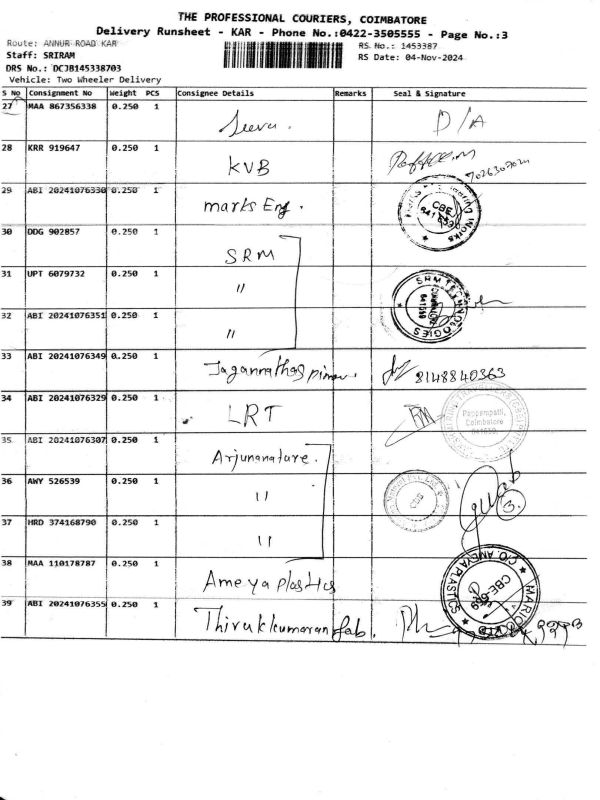 THE PROFESSIONAL COURIERS, COIMBATORE
Delivery Runsheet - KAR - Phone No.:0422-3505555 - Page No.:3
Route: ANNUR ROAD KAR
RS. No.: 1453387
Staff: SRIRAM
RS Date: 04-Nov-2024
DRS No.: DCJB145338703
Vehicle: Two Wheeler Delivery
S No Consignment No Weight PCS Consignee Details Remarks Seal & Signature
27 MAA 867356338 0.250 1 D/A
28 KRR 919647 0.250 1 KVB
29 ABI 20241076330 0.250 1 marks Eng.
CBE
30 DDG 902857 0.250 1 SRM
31 UPT 6079732 0.250 1 "
SRM TECHNOLOGIES
32 ABI 20241076351 0.250 1 "
33 ABI 20241076349 0.250 1 8148840363
34 ABI 20241076329 0.250 1 LRT
Pappampatti,
Coimbatore
35 ABI 20241076307 0.250 1 Arjunanature.
36 AWY 526539 0.250 1 "
37 HRD 374168790 0.250 1 "
3.
38 MAA 110178787 0.250 1 Ameya plastics
C/O. AMEYA PLASTICS
39 ABI 20241076355 0.250 1 Thirukkumaran fab.